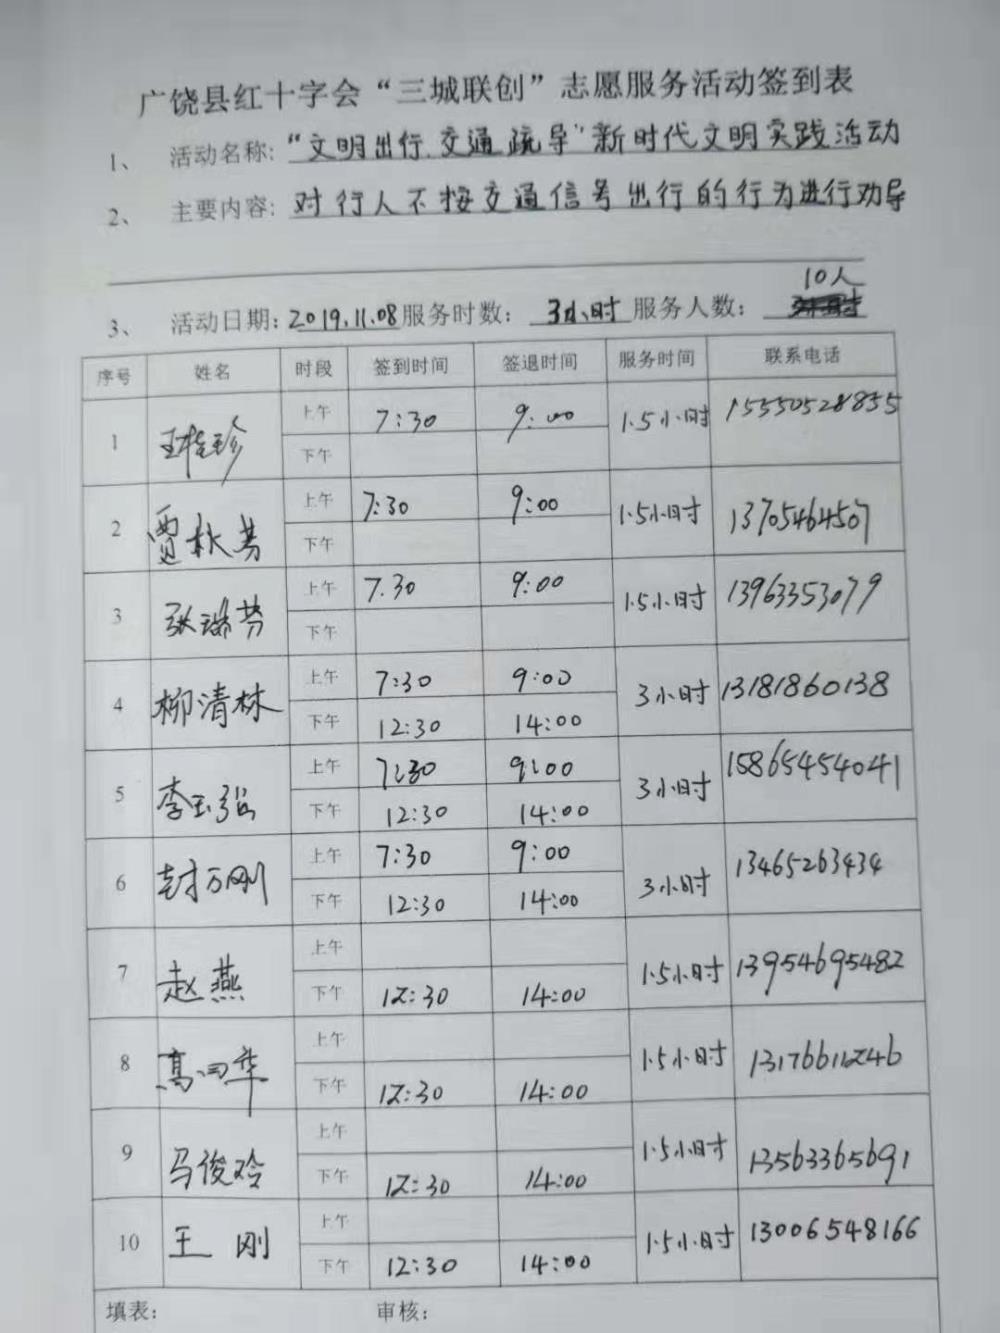 广饶县红十字会“三城联创”志愿服务活动签到表
1、 活动名称: “文明出行、交通疏导”新时代文明实践活动
2、 主要内容: 对行人不按交通信号出行的行为进行劝导
10人
3、 活动日期: 2019.11.08 服务时数: 3小时 服务人数:
序号 姓名 时段 签到时间 签退时间 服务时间 联系电话
1 王桂珍 上午 7:30 9:00 1.5小时 15550528855
下午
2 贾秋芳 上午 7:30 9:00 1.5小时 13705464507
下午
3 张瑞芬 上午 7.30 9:00 1.5小时 13963353079
下午
4 柳清林 上午 7:30 9:00 3小时 13181860138
下午 12:30 14:00
5 李玉 上午 7:30 9:00 3小时 15865454041
下午 12:30 14:00
6 封万刚 上午 7:30 9:00 3小时 13465263434
下午 12:30 14:00
7 赵燕 上午 1.5小时 13954695482
下午 12:30 14:00
8 高四华 上午 1.5小时
下午 12:30 14:00
9 马俊玲 上午 1.5小时 13563365691
下午 12:30 14:00
10 王刚 上午 1.5小时 13006548166
下午 12:30 14:00
填表: 审核: